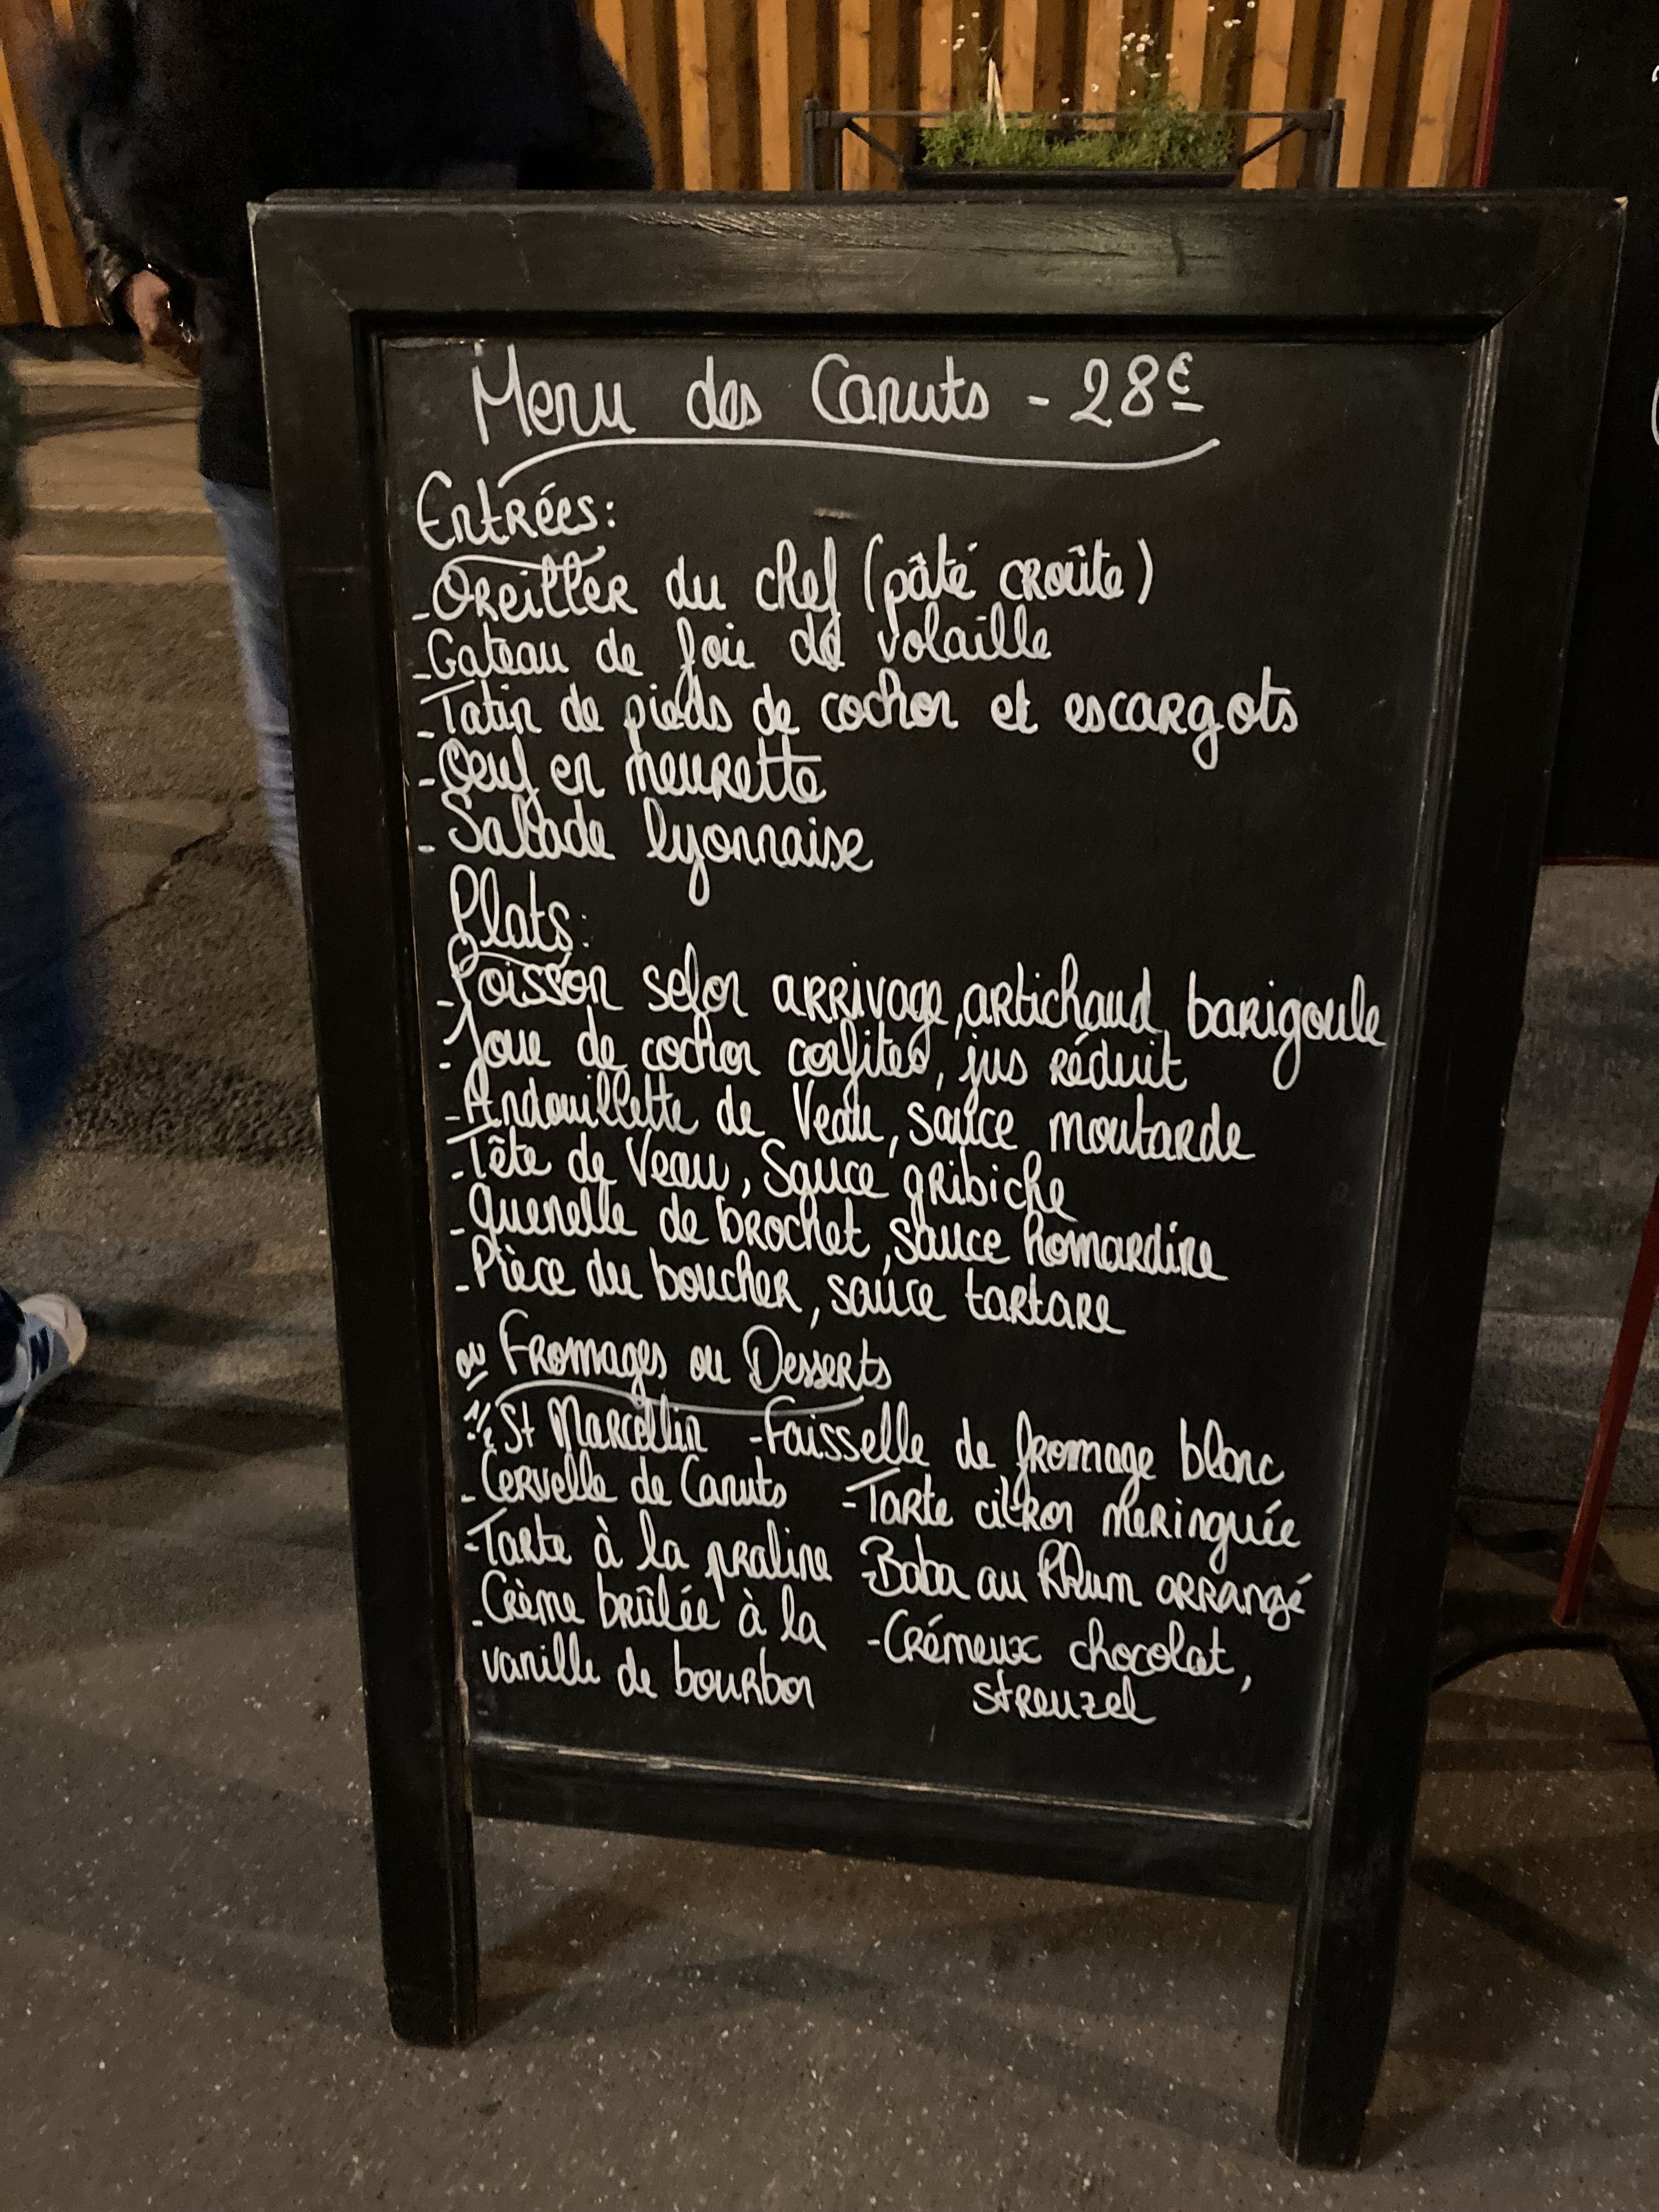 Menu des Canuts - 28€
Entrées:
- Oreiller du chef (pâté croûte)
- Gateau de foie de volaille
- Tatin de pieds de cochon et escargots
- Oeuf en meurette
- Salade lyonnaise
Plats:
- Poisson selon arrivage, artichaud barigoule
- Joue de cochon confites, jus réduit
- Andouillette de Veau, sauce moutarde
- Tête de Veau, Sauce gribiche
- Quenelle de brochet, sauce homardine
- Pièce du boucher, sauce tartare
ou Fromages ou Desserts
- 1/2 St Marcellin - Faisselle de fromage blanc
- Cervelle de Canuts - Tarte citron meringuée
- Tarte à la praline - Baba au Rhum arrangé
- Crème brûlée à la - Crémeux chocolat,
vanille de bourbon streuzel